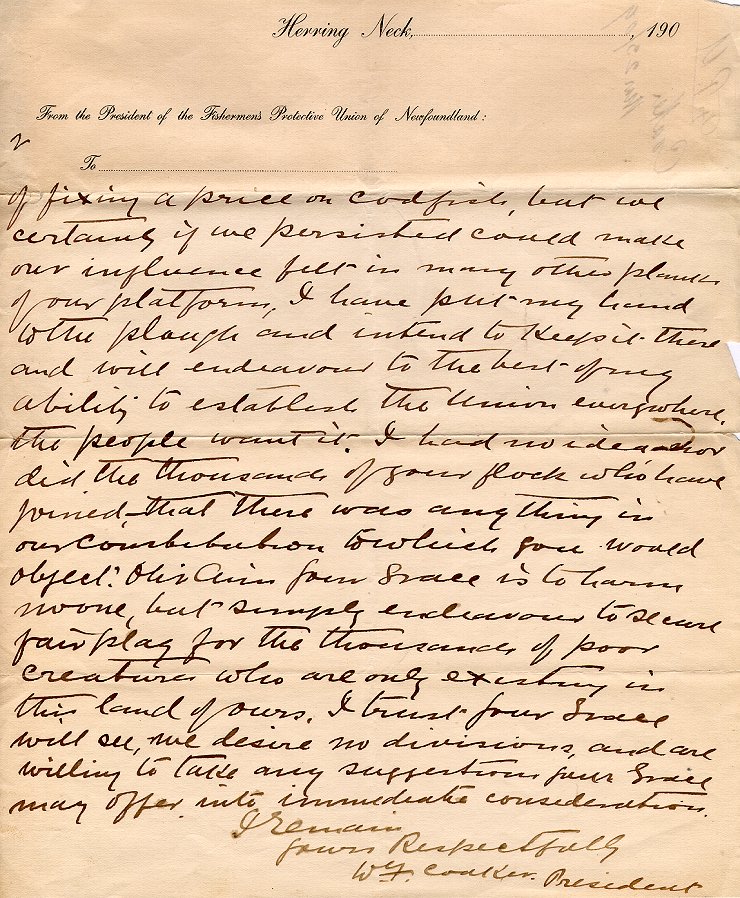 Herring Neck, , 190
From the President of the Fishermen's Protective Union of Newfoundland:
2
To
of fixing a price on codfish, but we
certainly if we persisted could make
our influence felt in many other planks
of our platform, I have put my hand
to the plough and intend to keep it there
and will endeavour to the best of my
ability to establish the Union everywhere.
the people want it. I had no idea nor
did the thousands of your flock who have
joined, that there was anything in
our Constitution to which you would
object. Our Aim Your Grace is to harm
no one, but simply endeavour to secure
fair play for the thousands of poor
creatures who are only existing in
this land of ours. I trust Your Grace
will see, we desire no divisions, and are
willing to take any suggestions your Grace
may offer into immediate consideration.
I remain
Yours Respectfully
W.F. Coaker. President